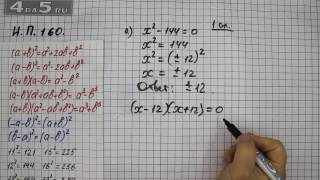 4da5.RU
Н.П. 160.
(a+b)²=a²+2ab+b²
(a-b)²=a²-2ab+b²
(a+b)(a-b)=a²-b²
(a-b)(a²+ab+b²)=a³-b³
(a+b)(a²-ab+b²)=a³+b³
(-a-b)²=(a+b)²
(b-a)²=(a-b)²
11²-121 15²=225
12²=144 16²=256
а) x²-144=0 1 сп.
x²=144
x²=(±12)²
x=±12
Ответ: ±12
(x-12)(x+12)=0